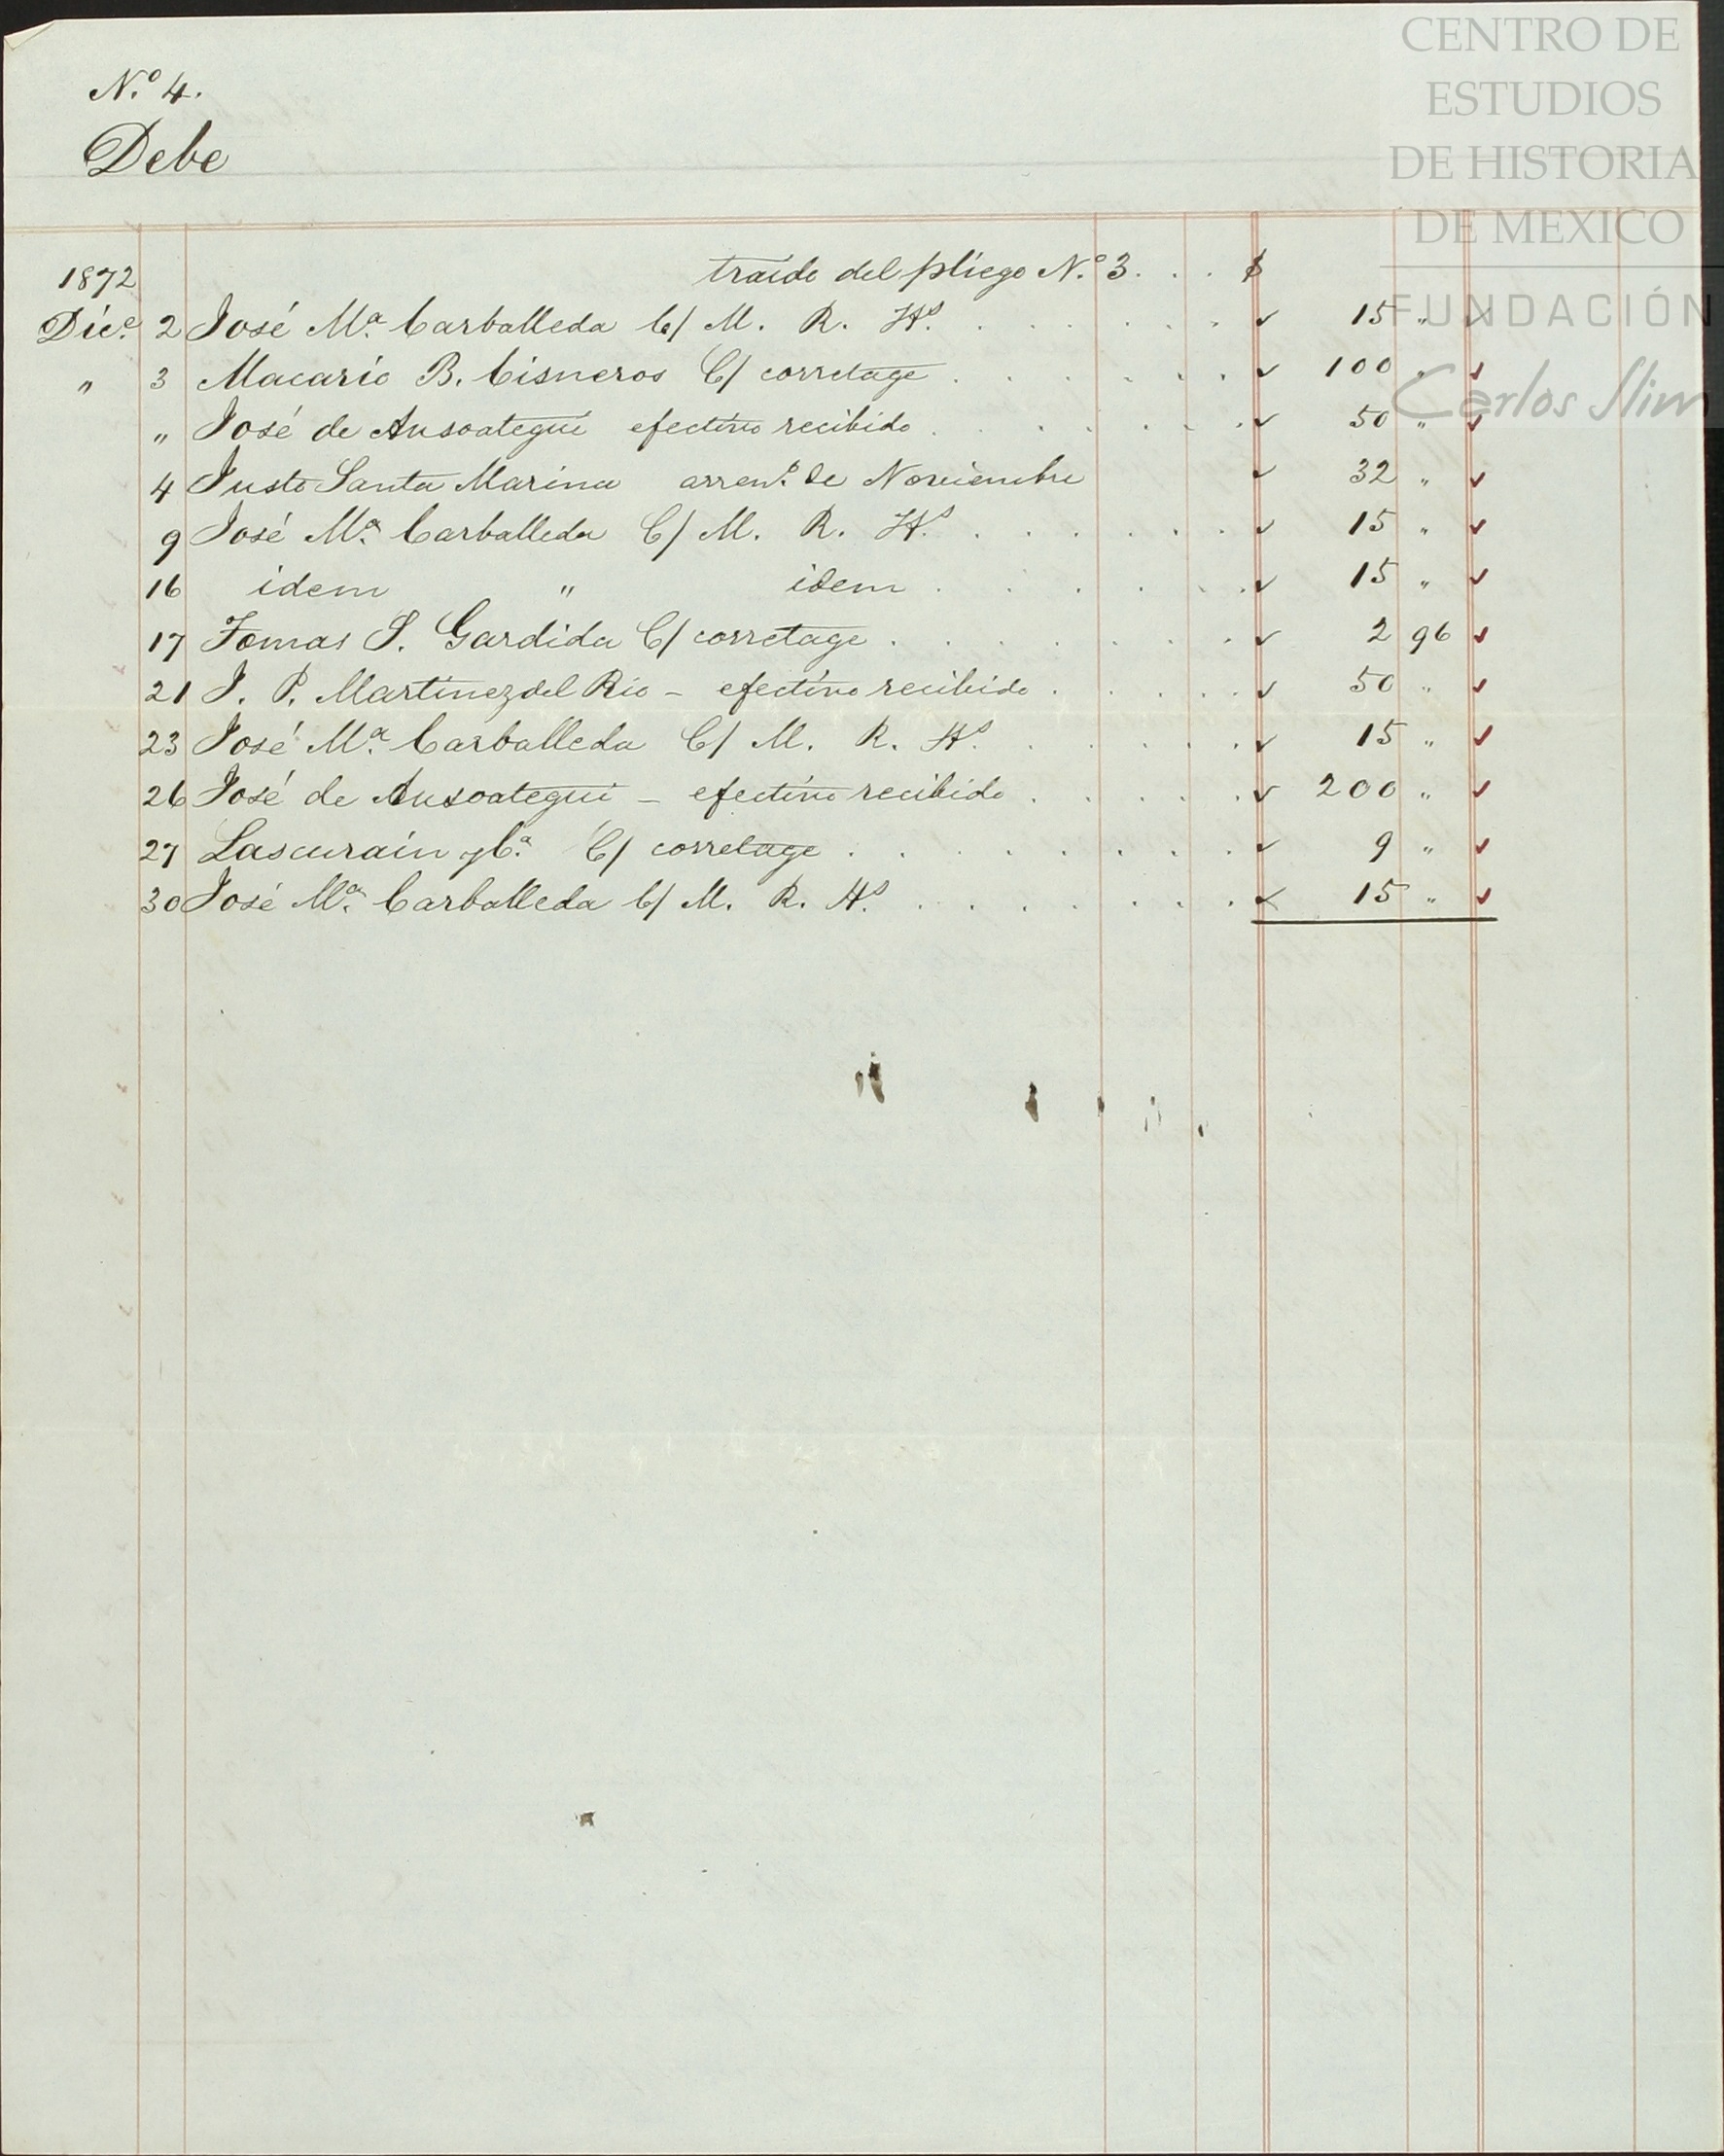 CENTRO DE
ESTUDIOS
DE HISTORIA
DE MEXICO
FUNDACIÓN
Carlos Slim
N.º 4.
Debe
1872 traido del pliego N.º 3. . . $
Dic.e 2 José M.a Carballeda C/ M. R. H.s 15 "
" 3 Macario B. Cisneros C/ corretage 100 "
" José de Ansoategui efectivo recibido 50 "
4 Justo Santa Marina arren.o de Noviembre 32 "
9 José M.a Carballeda C/ M. R. H.s 15 "
16 idem " idem 15 "
17 Tomas S. Gardida C/ corretage 2 96
21 J. P. Martinez del Rio - efectivo recibido 50 "
23 José M.a Carballeda C/ M. R. H.s 15 "
26 José de Ansoategui - efectivo recibido 200 "
27 Lascurain y C.a C/ corretage 9 "
30 José M.a Carballeda C/ M. R. H.s 15 "